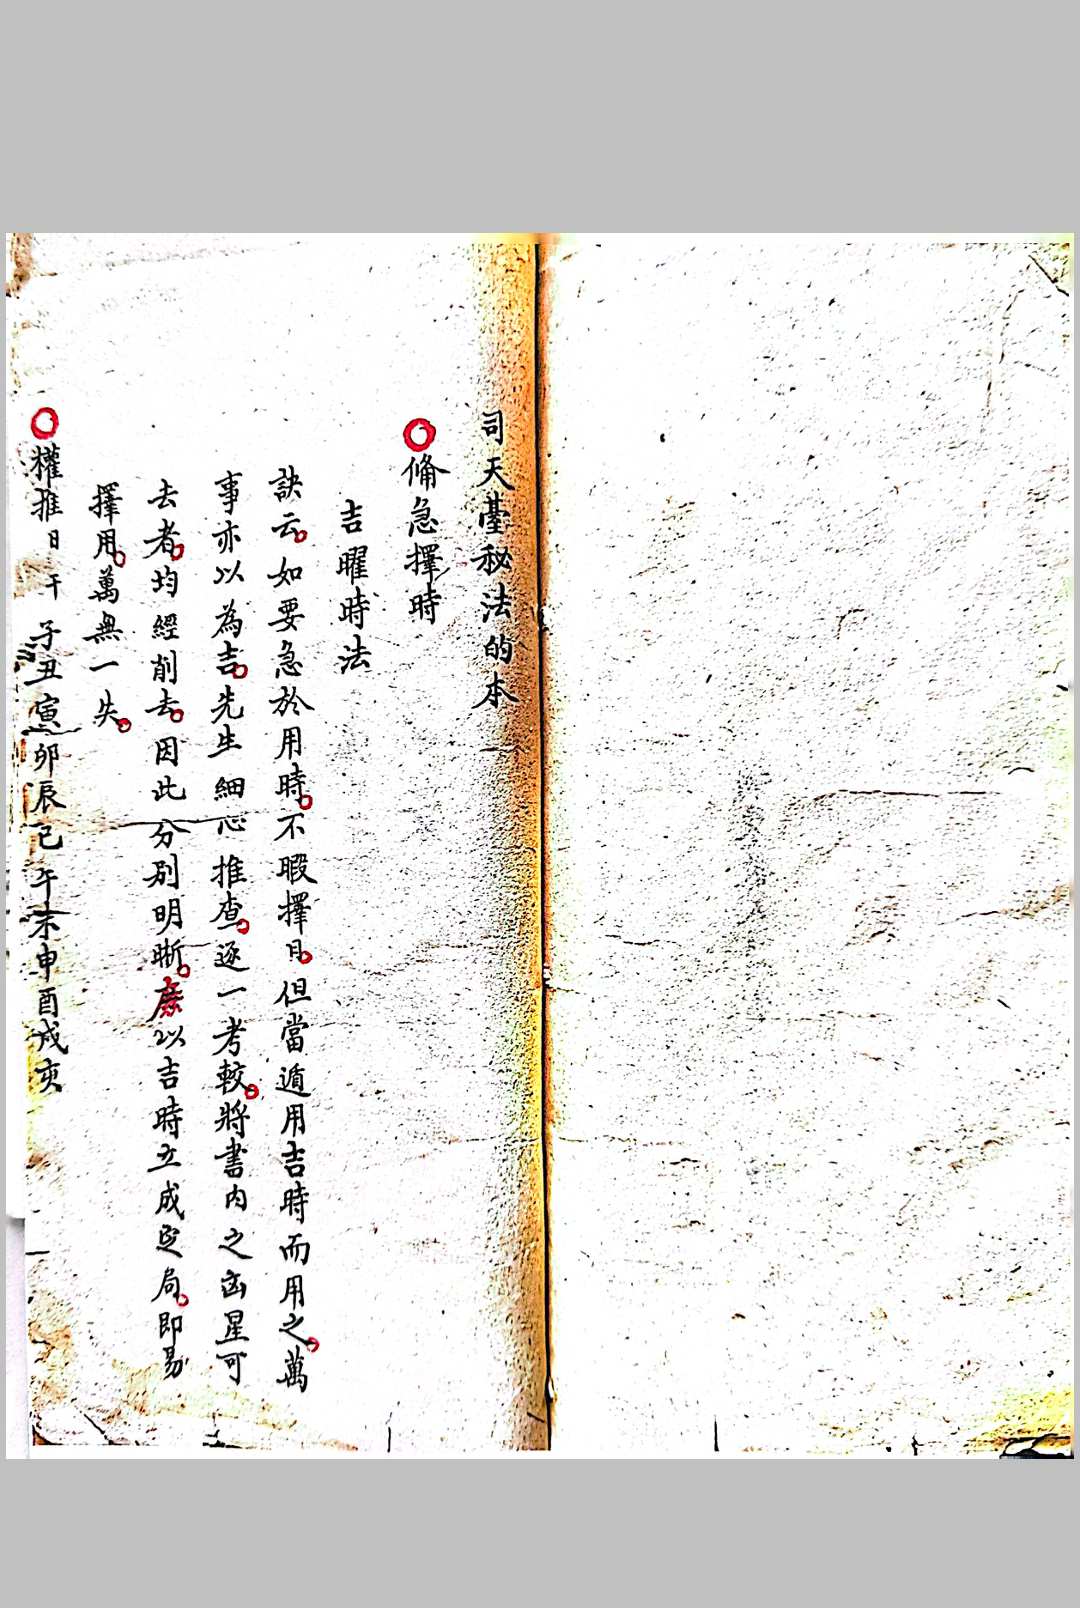 司天臺秘法的本
○俻急擇時
吉曜時法
訣云。如要急於用時。不暇擇日。但當遁用吉時而用之。萬
事亦以為吉。先生細心推查。逐一考較。將書內之凶星可
去者。均經削去。因此分別明晰。庶以吉時立成定局。即易
擇用。萬無一失。
○權推日干子丑寅卯辰巳午未申酉戌亥